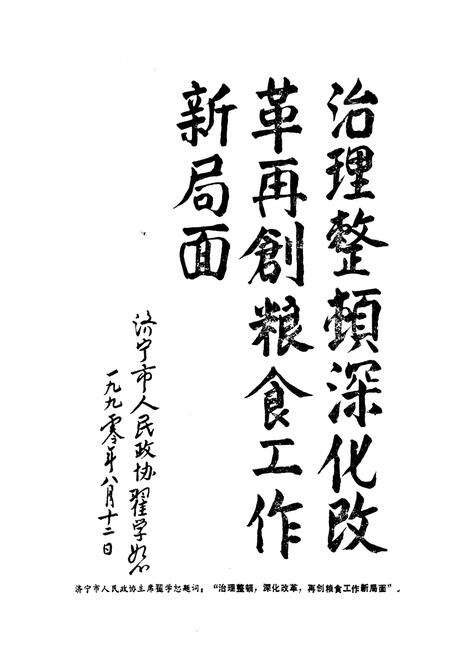 治理整頓深化改
革再創粮食工作
新局面
济宁市人民政协翟学恕
一九九零年八月十二日
济宁市人民政协主席翟学恕题词："治理整顿，深化改革，再创粮食工作新局面"。